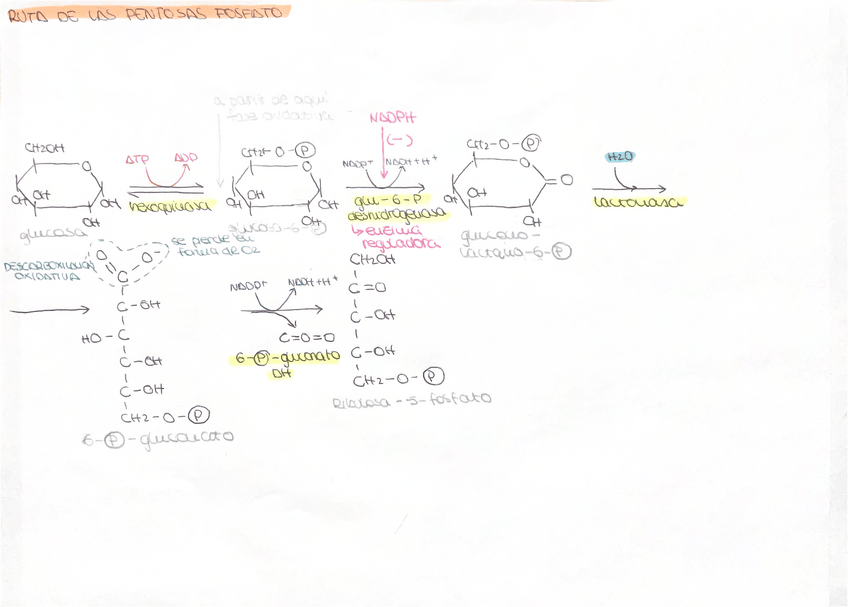 RUTA DE LAS PENTOSAS FOSFATO
a partir de aquí
fase oxidativa
NADPH
(-)
CH2OH
O
OH
OH
OH
OH
glucosa
ATP
ADP
hexoquinasa
CH2-O-P
O
OH
OH
OH
OH
glucosa-6-P
NADP+
NADH+H+
glu-6-P
deshidrogenasa
↳ enzima
reguladora
CH2-O-P
O
=O
OH
OH
OH
glucono-
lactona-6-P
H2O
lactonasa
DESCARBOXILACIÓN
OXIDATIVA
se perde en
forma de O2
O
O-
C
C-OH
HO-C
C-OH
C-OH
CH2-O-P
6-P-gluconato
NADP+
NADH+H+
C=O=O
6-P-gluconato
DH
CH2OH
C=O
C-OH
C-OH
CH2-O-P
Ribulosa-5-fosfato